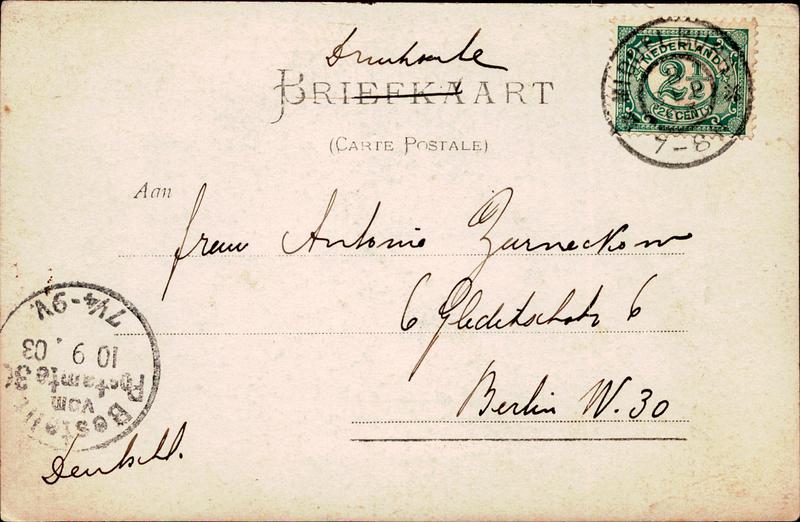 Drucksache
BRIEFKAART
(CARTE POSTALE)
NEDERLAND
2½
2½ CENT
7-8
Aan
Frau Antonie Zarneckow
6 Gleditschstr 6
Berlin W. 30
Deutschl.
Bestellt
vom
Postamte 30
10 9. 03
7¼-9V.